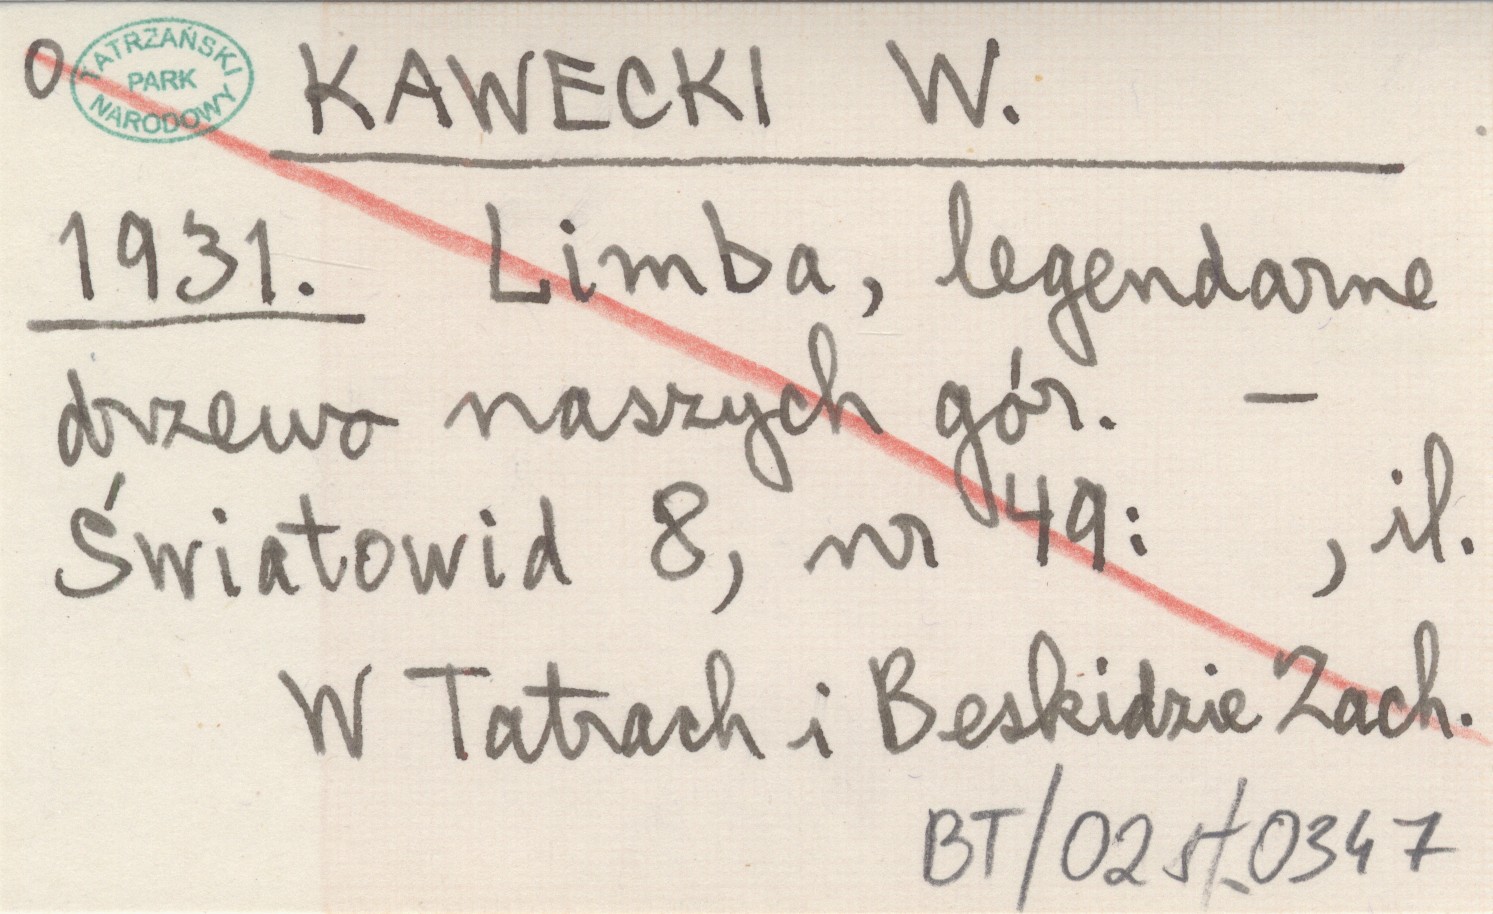 O
TATRZAŃSKI
PARK
NARODOWY
KAWECKI W.
1931. Limba, legendarne
drzewo naszych gór. –
Światowid 8, nr 49: , il.
W Tatrach i Beskidzie Zach.
BT/02 st.0347